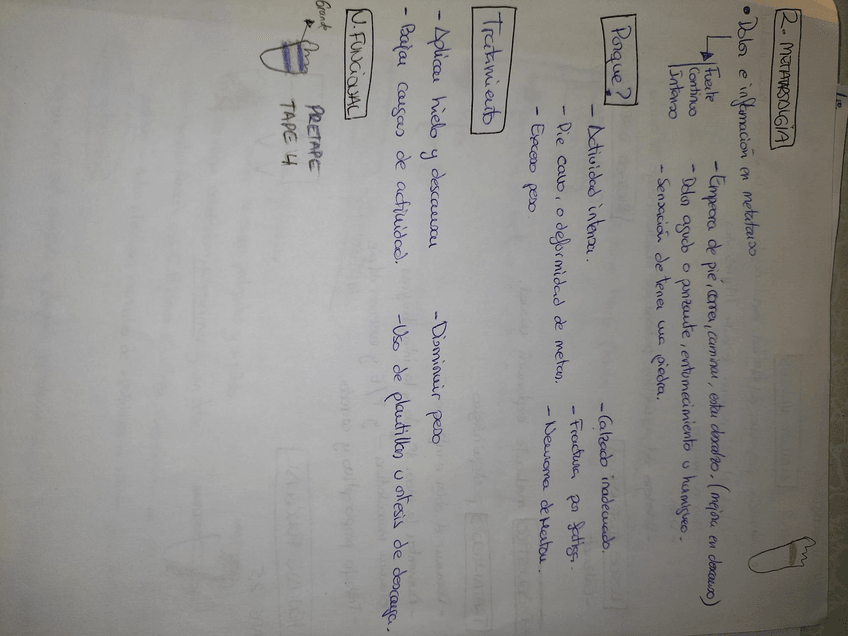 2. METATARSALGIA
• Dolor e inflamación en metatarso
Fuerte
Continuo
Intenso
- Empeora de pié, correr, caminar, estar descalzo, (mejora en descanso)
- Dolor agudo o punzante, entumecimiento u hormigueo.
- Sensación de tener una piedra.
Porque?
- Actividad intensa.
- Pie cavo, o deformidad de metas.
- Exceso peso
- Calzado inadecuado.
- Fractura por fatiga.
- Neuroma de Morton.
Tratamiento
- Aplicar hielo y descansar
- Bajar cargas de actividad.
- Disminuir peso
- Uso de plantillas u ortesis de descarga.
N. FUNCIONAL
Grande
PRETAPE
TAPE 4